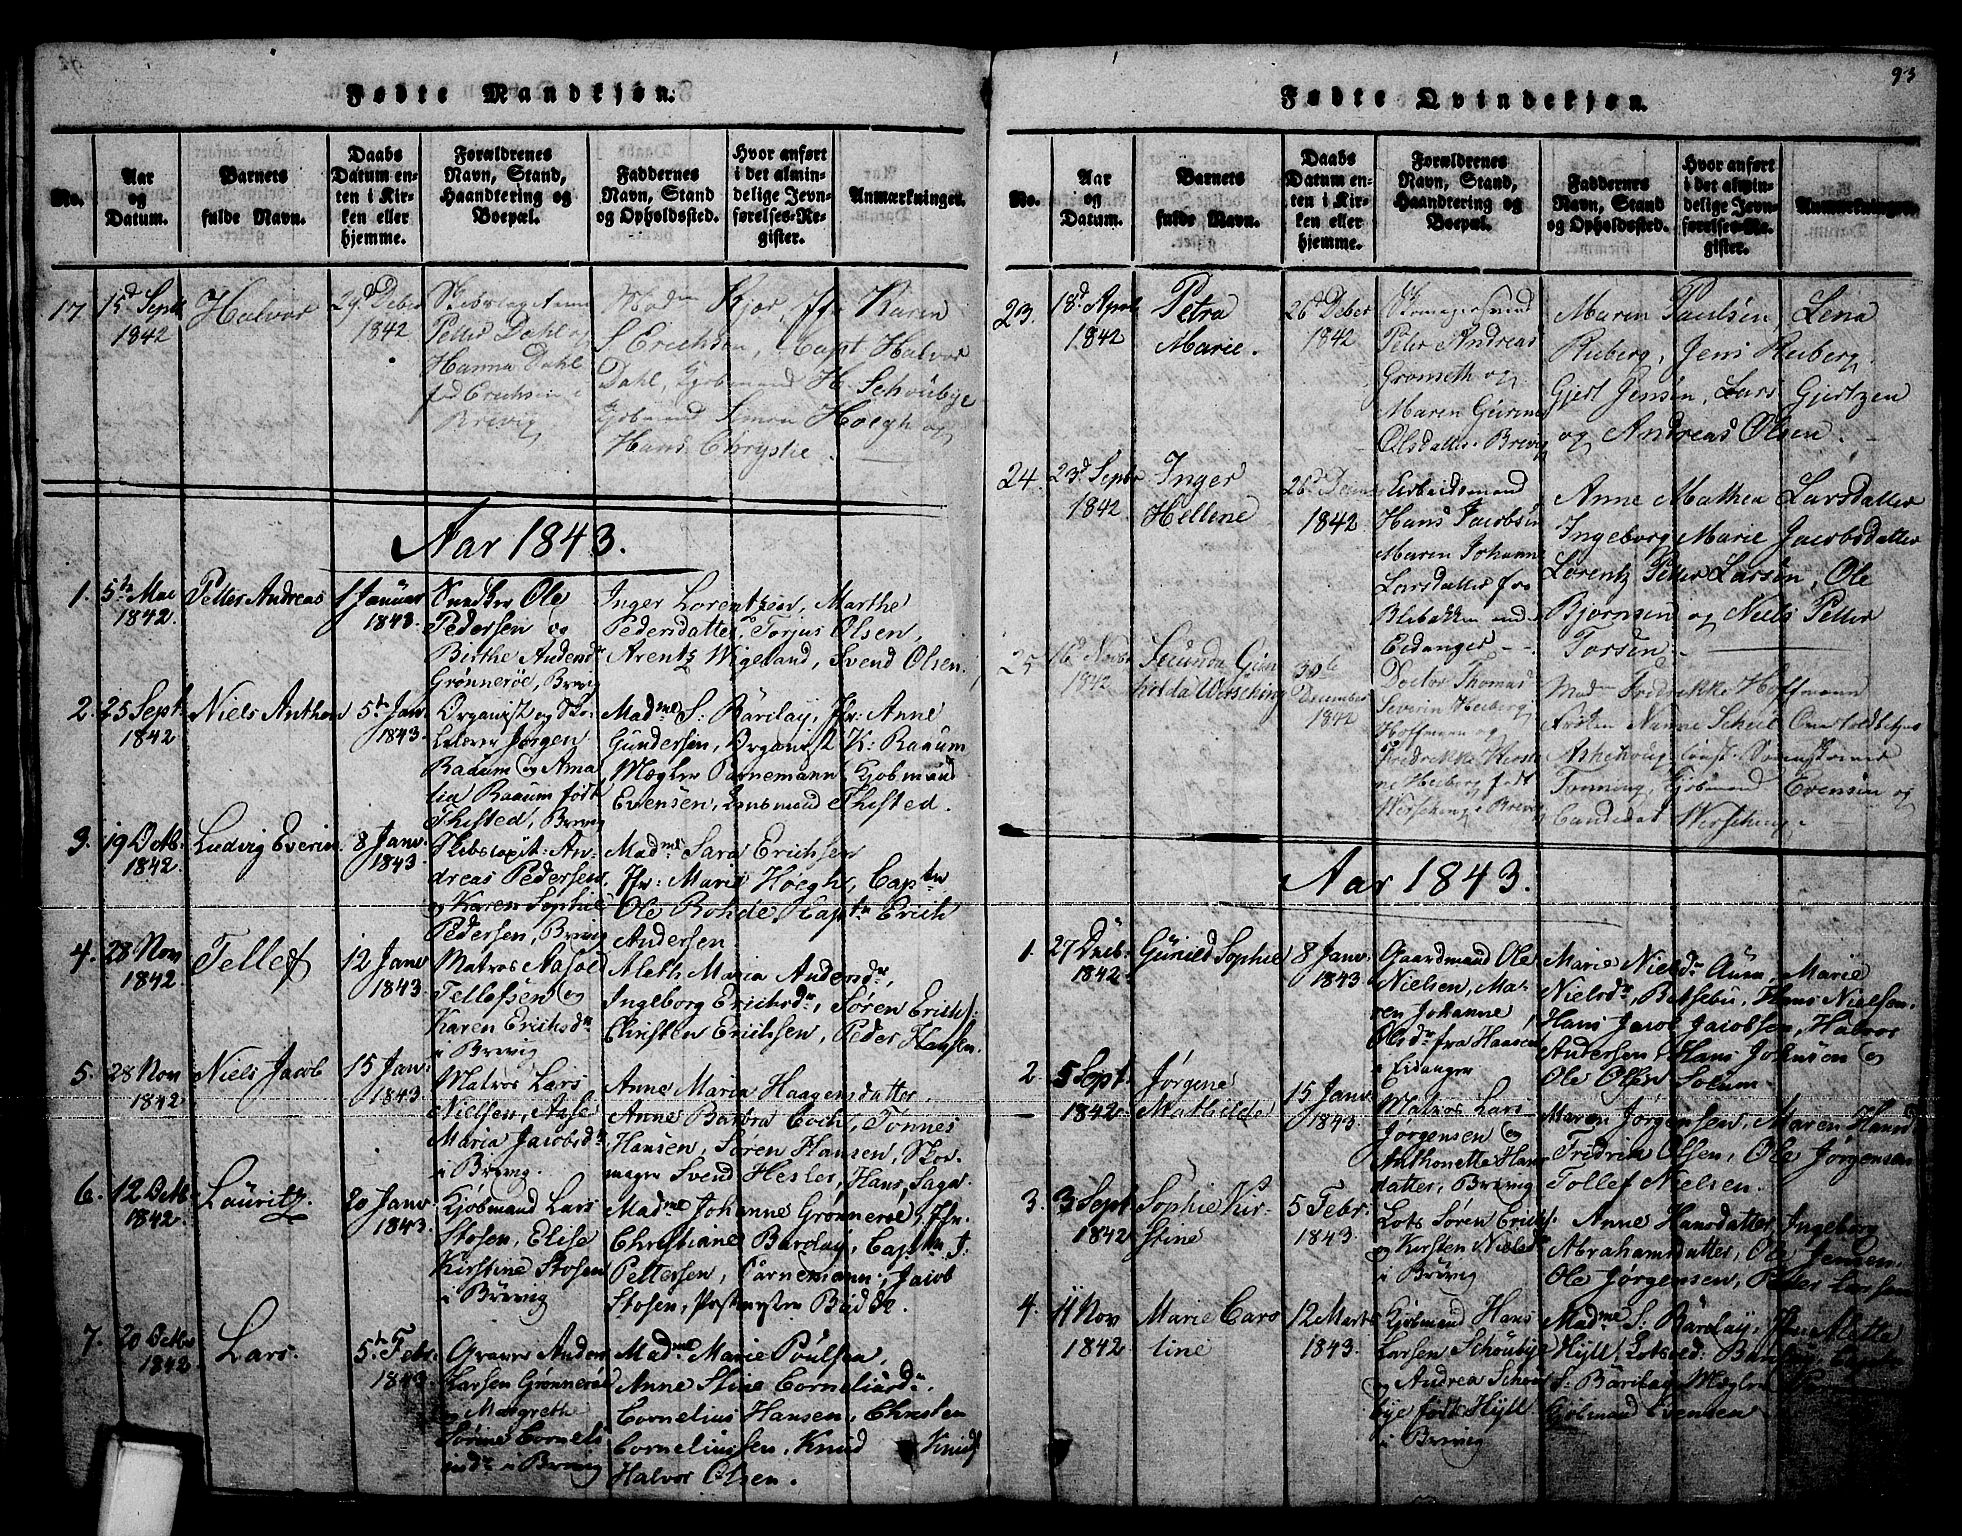 Fødte Mandkjøn.
No.
Aar og Datum.
Barnets fulde Navn.
Daabs Datum enten i Kirken eller hjemme.
Forældrenes Navn, Stand, Haandtering og Boepæl.
Faddernes Navn, Stand og Opholdssted.
Hvor anført i det almindelige Jevnførelses-Register.
Anmærkninger.
17 15d Sept 1842
Halvor
29d Deber 1842
Petter Dahl og
Hanna Dahl
fød Erichsen i
Brevig
Kjør, Jfr Karen
S Erichsen, Capt Halvor
Dahl, Kjøbmand H. Schoubye
Kjøbmand Simon Høegh og
Hans Chrystie.
Aar 1843.
1. 5te Mai 1842.
Petter Andreas
1 Januar 1843.
Snedker Ole
Pedersen og
Berthe Andersdr
Grønnerøe, Brevig
Inger Lorentzen, Marthe
Pedersdatter, Torjus Olsen,
Arentz Wigeland, Svend Olsen.
2. 25 Sept 1842
Niels Anthon
5te Janv 1843.
Organist og Sko-
lelærer Jørgen
Raaum og Ama
lia Raaum født
Thisted, Brevig
Madme S: Barclay, Jfr: Anne
Gundersen, Organist K: Raaum
Mægler Parnemann, Kjøbmand
Evensen, Lensmand Thisted.
3. 19 Octb. 1842.
Ludvig Everin
8 Janv. 1843
Skibscapit: An-
dreas Pedersen,
og Karen Sophie
Pedersen, Brevig
Madme Sara Erichsen
Jfr: Marie Høegh, Captn
Ole Rohde, Captn Erich
Andersen
4. 28 Nov 1842
Tellef
12 Janv 1843
Matros Aasole
Tellefsen og
Karen Erichsdr
i Brevig
Aleth Maria Andersdr,
Ingeborg Erichsdr, Søren Erichs:
Christen Erichsen, Peder Hansen.
5. 28 Nov 1842
Niels Jacob
15 Janv: 1843
Matros Lars
Nielsen, Aase
Maria Jacobsdr
i Brevig.
Anne Maria Haagensdatter,
Anne Barbra Coch, Tønnes
Hansen, Søren Hansen, Skoe-
mager Svend Hesler, Hans Saga.
6. 12 Octb. 1842.
Lauritz.
20 Janv 1843.
Kjøbmand Lars
Stosen, Elise
Kirstine Stosen
i Brevig
Madme Johanne Grønneroe, Jfr.
Christiane Barclay, Captn J:
Pettersen, Parnemann, Jacob
Stosen, Postmester Budde.
7. 20 Octbr 1842
Lars.
5te Febr. 1843.
Graver Anders
Larsen Grønneroe
og Margrethe
Sørine Corneli
usdr i Brevig
Madme Marie Poulsen,
Anne Stine Corneliusdr.
Cornelius Hansen, Christen
Corneliussen, Knud Knuds
Halvor Olsen.
93
Fødte Qvindekjøn.
No.
Aar og Datum.
Barnets fulde Navn.
Daabs Datum enten i Kirken eller hjemme.
Forældrenes Navn, Stand, Haandtering og Boepæl.
Faddernes Navn, Stand og Opholdssted.
Hvor anført i det almindelige Jevnførelses-Register.
Anmærkninger.
23. 18d April 1842
Petra
Marie.
26d Deber 1842
Skomagersvend
Peter Andreas
Gromseth og
Maren Gurine
Olsdatter Brevig
Maren Paulsen, Lena
Ruberg, Jens Ruberg,
Gjert Jensen, Lars Gjertzen
og Andreas Olsen.
24. 23d Septbr 1842
Inger
Hellene
1842
Arbeidsmand
Hans Jacobsen
Maren Johanne
Larsdatter fra
Blebakken under
Eidanger
Anne Mathea Larsdatter
Ingeborg Marie Jacobsdatter
Lorentz Petter Larsen, Ole
Bjørnsen og Niels Petter
Torsen.
25 16 Novbr 1842
Secunda Gun
hilda Wirsching
30te December 1842
Doctor Thomas
Severin Heiberg
Hoffmann og
Fredrikke Kirsti
ne Heiberg født
Wirsching i Brevig
Madm Fredrikke Hoffmann
Nanne Scheel Overtoldbetjent
Tonning, Kjøbmand Evensen og
Candidat Wirsching.
Aar 1843.
1. 27 Decb. 1842.
Gunild Sophie
8 Janv. 1843
Gaardmand Ole
Nielsen, Ma-
ren Johanne
Olsdr fra Haasen
i Eidanger
Marie Nielsdr Auen, Marie
Nielsdr, Betsebu, Hans Nielsen.
Hans Jacob Jacobsen, Halvor
Andersen, Hans Johnsen og
Ole Olsen Solum.
2. 5 Sept. 1842
Jørgene
Mathilde
15 Janv 1843.
Matros Lars
Jørgensen og
Anthonette Hans
datter, Brevig
Maren Jørgensen, Maren Hansd
Fredrik Olsen, Ole Jørgensen
Tollef Nielsen.
3. 3 Sept 1842
Sophie Kir-
stine
5 Febr. 1843.
Lots Søren Erichs.
og Kirsten Nielsdr
i Brevig
Anne Hansdatter, Ingeborg
Abrahamsdatter, Ole Jensen.
Ole Jørgensen, Petter Larsen
4. 11 Nov 1842
Marie Caro
line
12 Marts 1843.
Kjøbmand Hans
Larsen Schoubye
og Andrea Schou
bye født Hyll
i Brevig
Madme S: Barclay, Jfr Aletta
Hyll, Lotsold: Barclay,
S: Barclay, Mægler
Kjøbmand Evensen